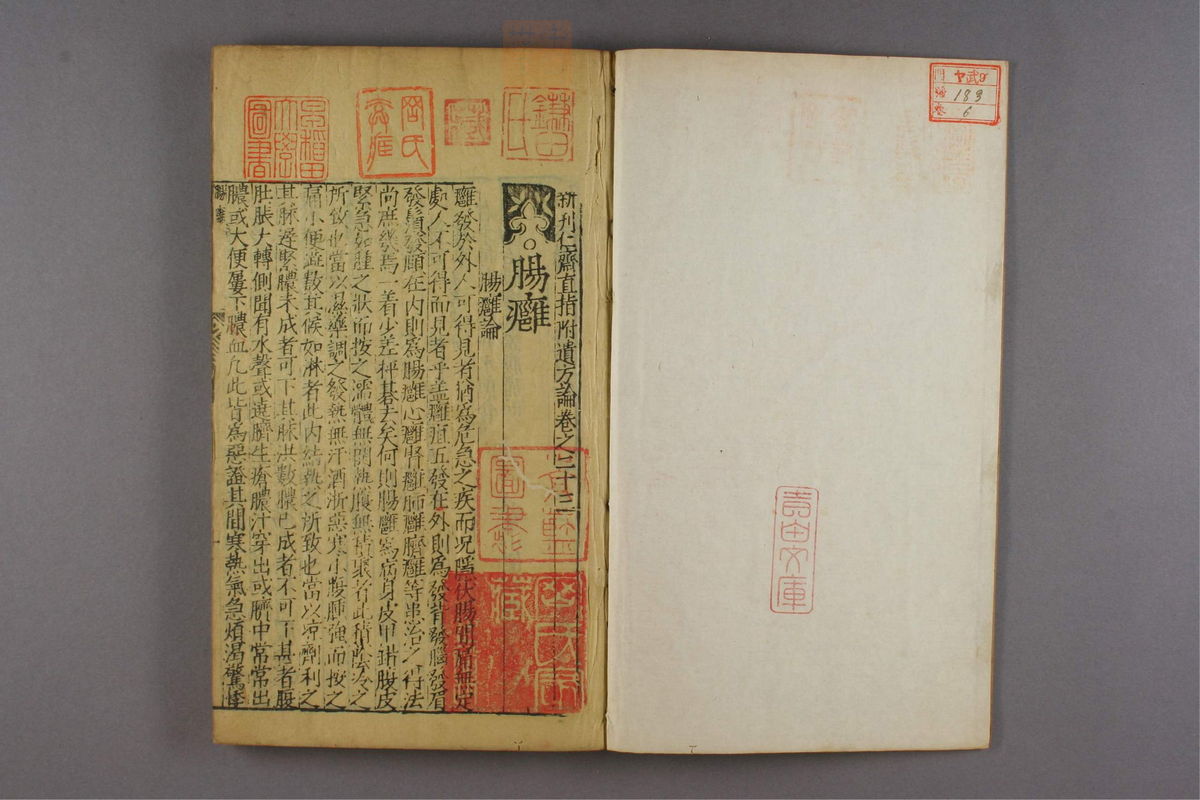 ヤ武9
183
6
青田文庫
新刊仁齋直指附遺方論卷之二十三
腸癰
腸癰論
癰發於外人可得見者猶爲危急之疾而況隱伏腸間痛無定
處人不可得而見者乎蓋癰疽五發在外則爲發背發腦發眉
發鬚發頤在內則爲腸癰心癰腎癰肺癰臍癰等患治之有法
尚庶幾焉一着少差秤碁去矣何則腸癰爲病身皮甲錯腹皮
緊急如腫之狀而按之濡體無間熱腹無積聚者此積陰冷之
所致也當以溫藥調之發熱無汗洒淅惡寒小腹腫強而按之
痛小便澁數其候如淋者此內結熱之所致也當以凉劑利之
其脉遲緊膿未成者可下其脉洪數膿已成者不可下甚者腹
肚脹大轉側聞有水聲或遶臍生瘡膿汁穿出或臍中常常出
膿或大便屢下膿血凡此皆爲惡證其間寒熱氣急煩渴驚悸
早稻田大學圖書